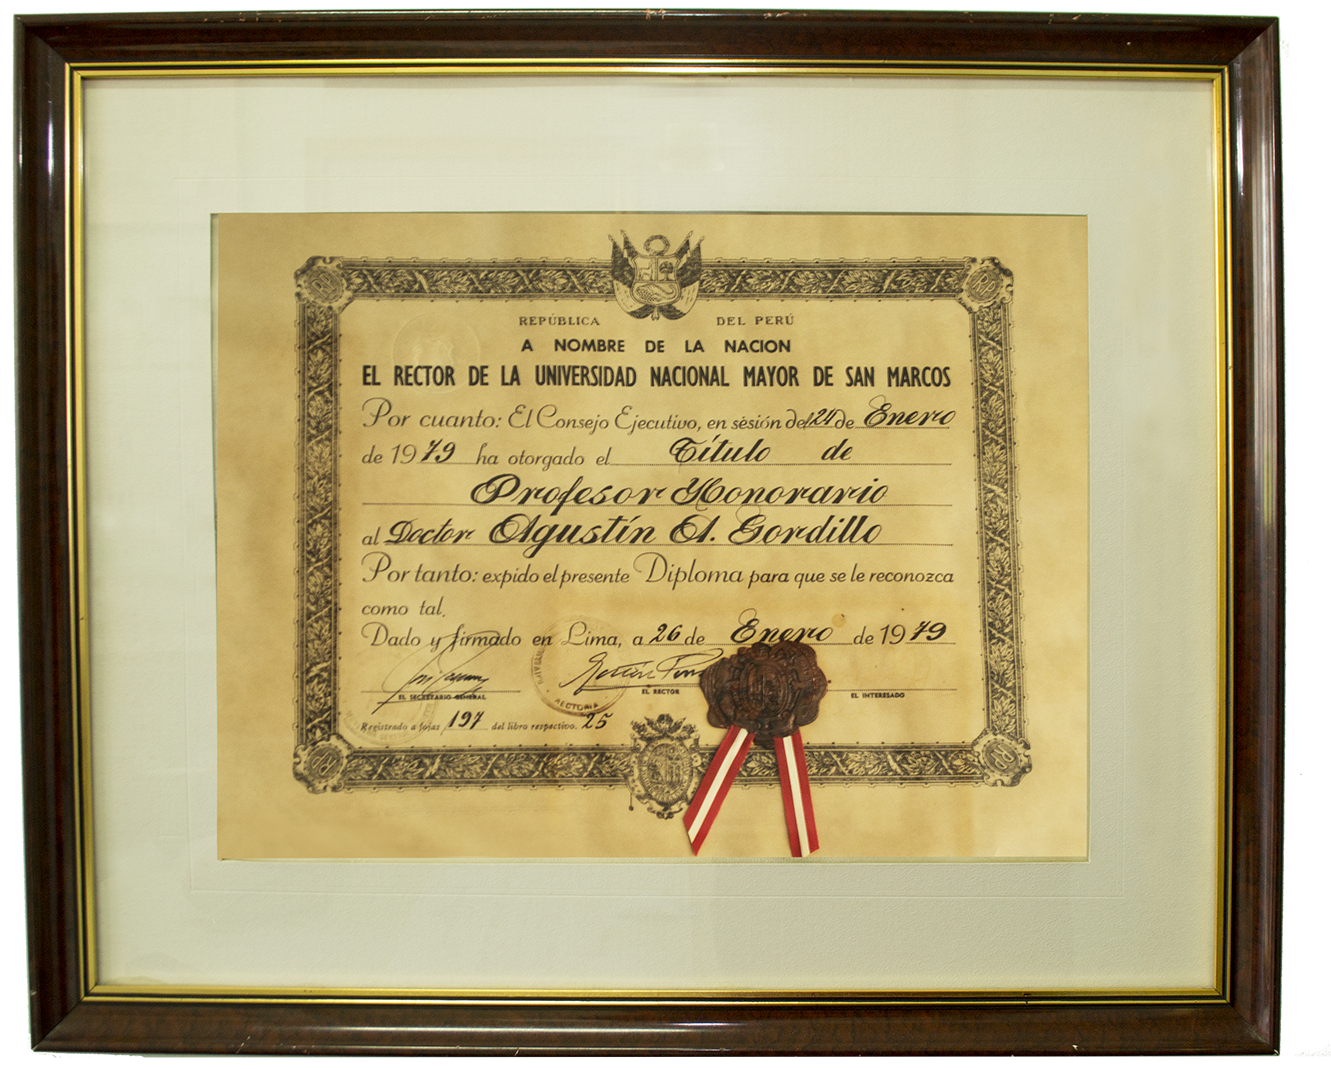 REPÚBLICA DEL PERÚ
A NOMBRE DE LA NACION
EL RECTOR DE LA UNIVERSIDAD NACIONAL MAYOR DE SAN MARCOS
Por cuanto: El Consejo Ejecutivo, en sésión del 24 de Enero
de 1979 ha otorgado el Título de
Profesor Honorario
al Doctor Agustín A. Gordillo
Por tanto: expido el presente Diploma para que se le reconozca
como tal.
Dado y firmado en Lima, a 26 de Enero de 1979
EL SECRETARIO GENERAL EL RECTOR EL INTERESADO
RECTORIA
Registrado a fojas 197 del libro respectivo. 25